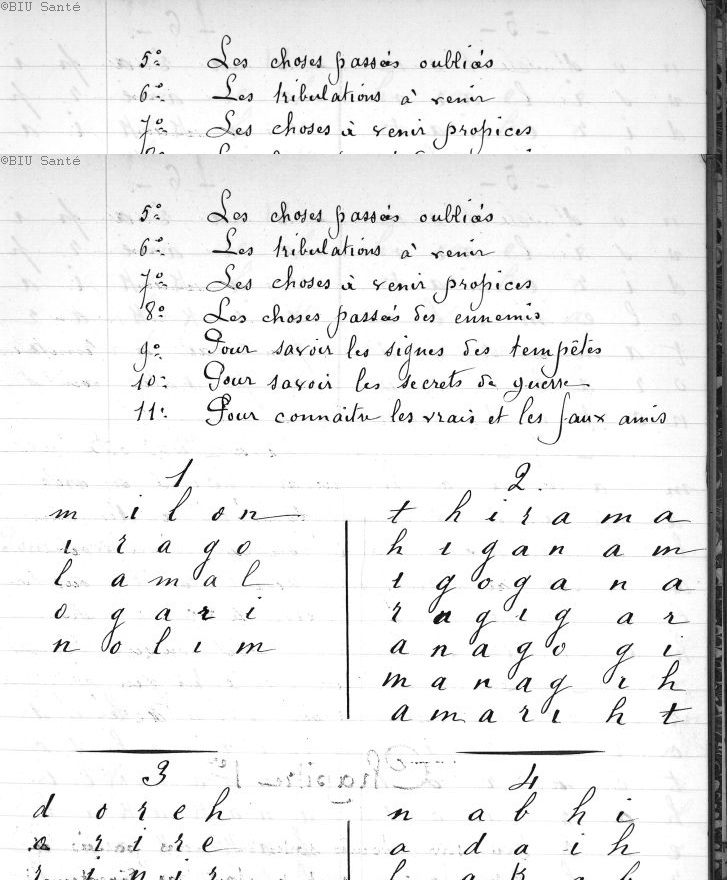 ©BIU Santé
5º Les choses passées oubliées
6º Les tribulations à venir
7º Les choses à venir propices
©BIU Santé
5º Les choses passées oubliées
6º Les tribulations à venir
7º Les choses à venir propices
8º Les choses passées des ennemis
9º Pour savoir les signes des tempêtes
10º Pour savoir les secrets de guerre
11º Pour connaitre les vrais et les faux amis
1
m i l o n
i r a g o
l a m a l
o g a r i
n o l i m
2.
t h i r a m a
h i g a n a m
i g o g a n a
r a g i g a r
a n a g o g i
m a n a g i h
a m a r i h t
3
d o r e h
o r i r e
r i n i r
4
n a b h i
a d a i h
l a k a h